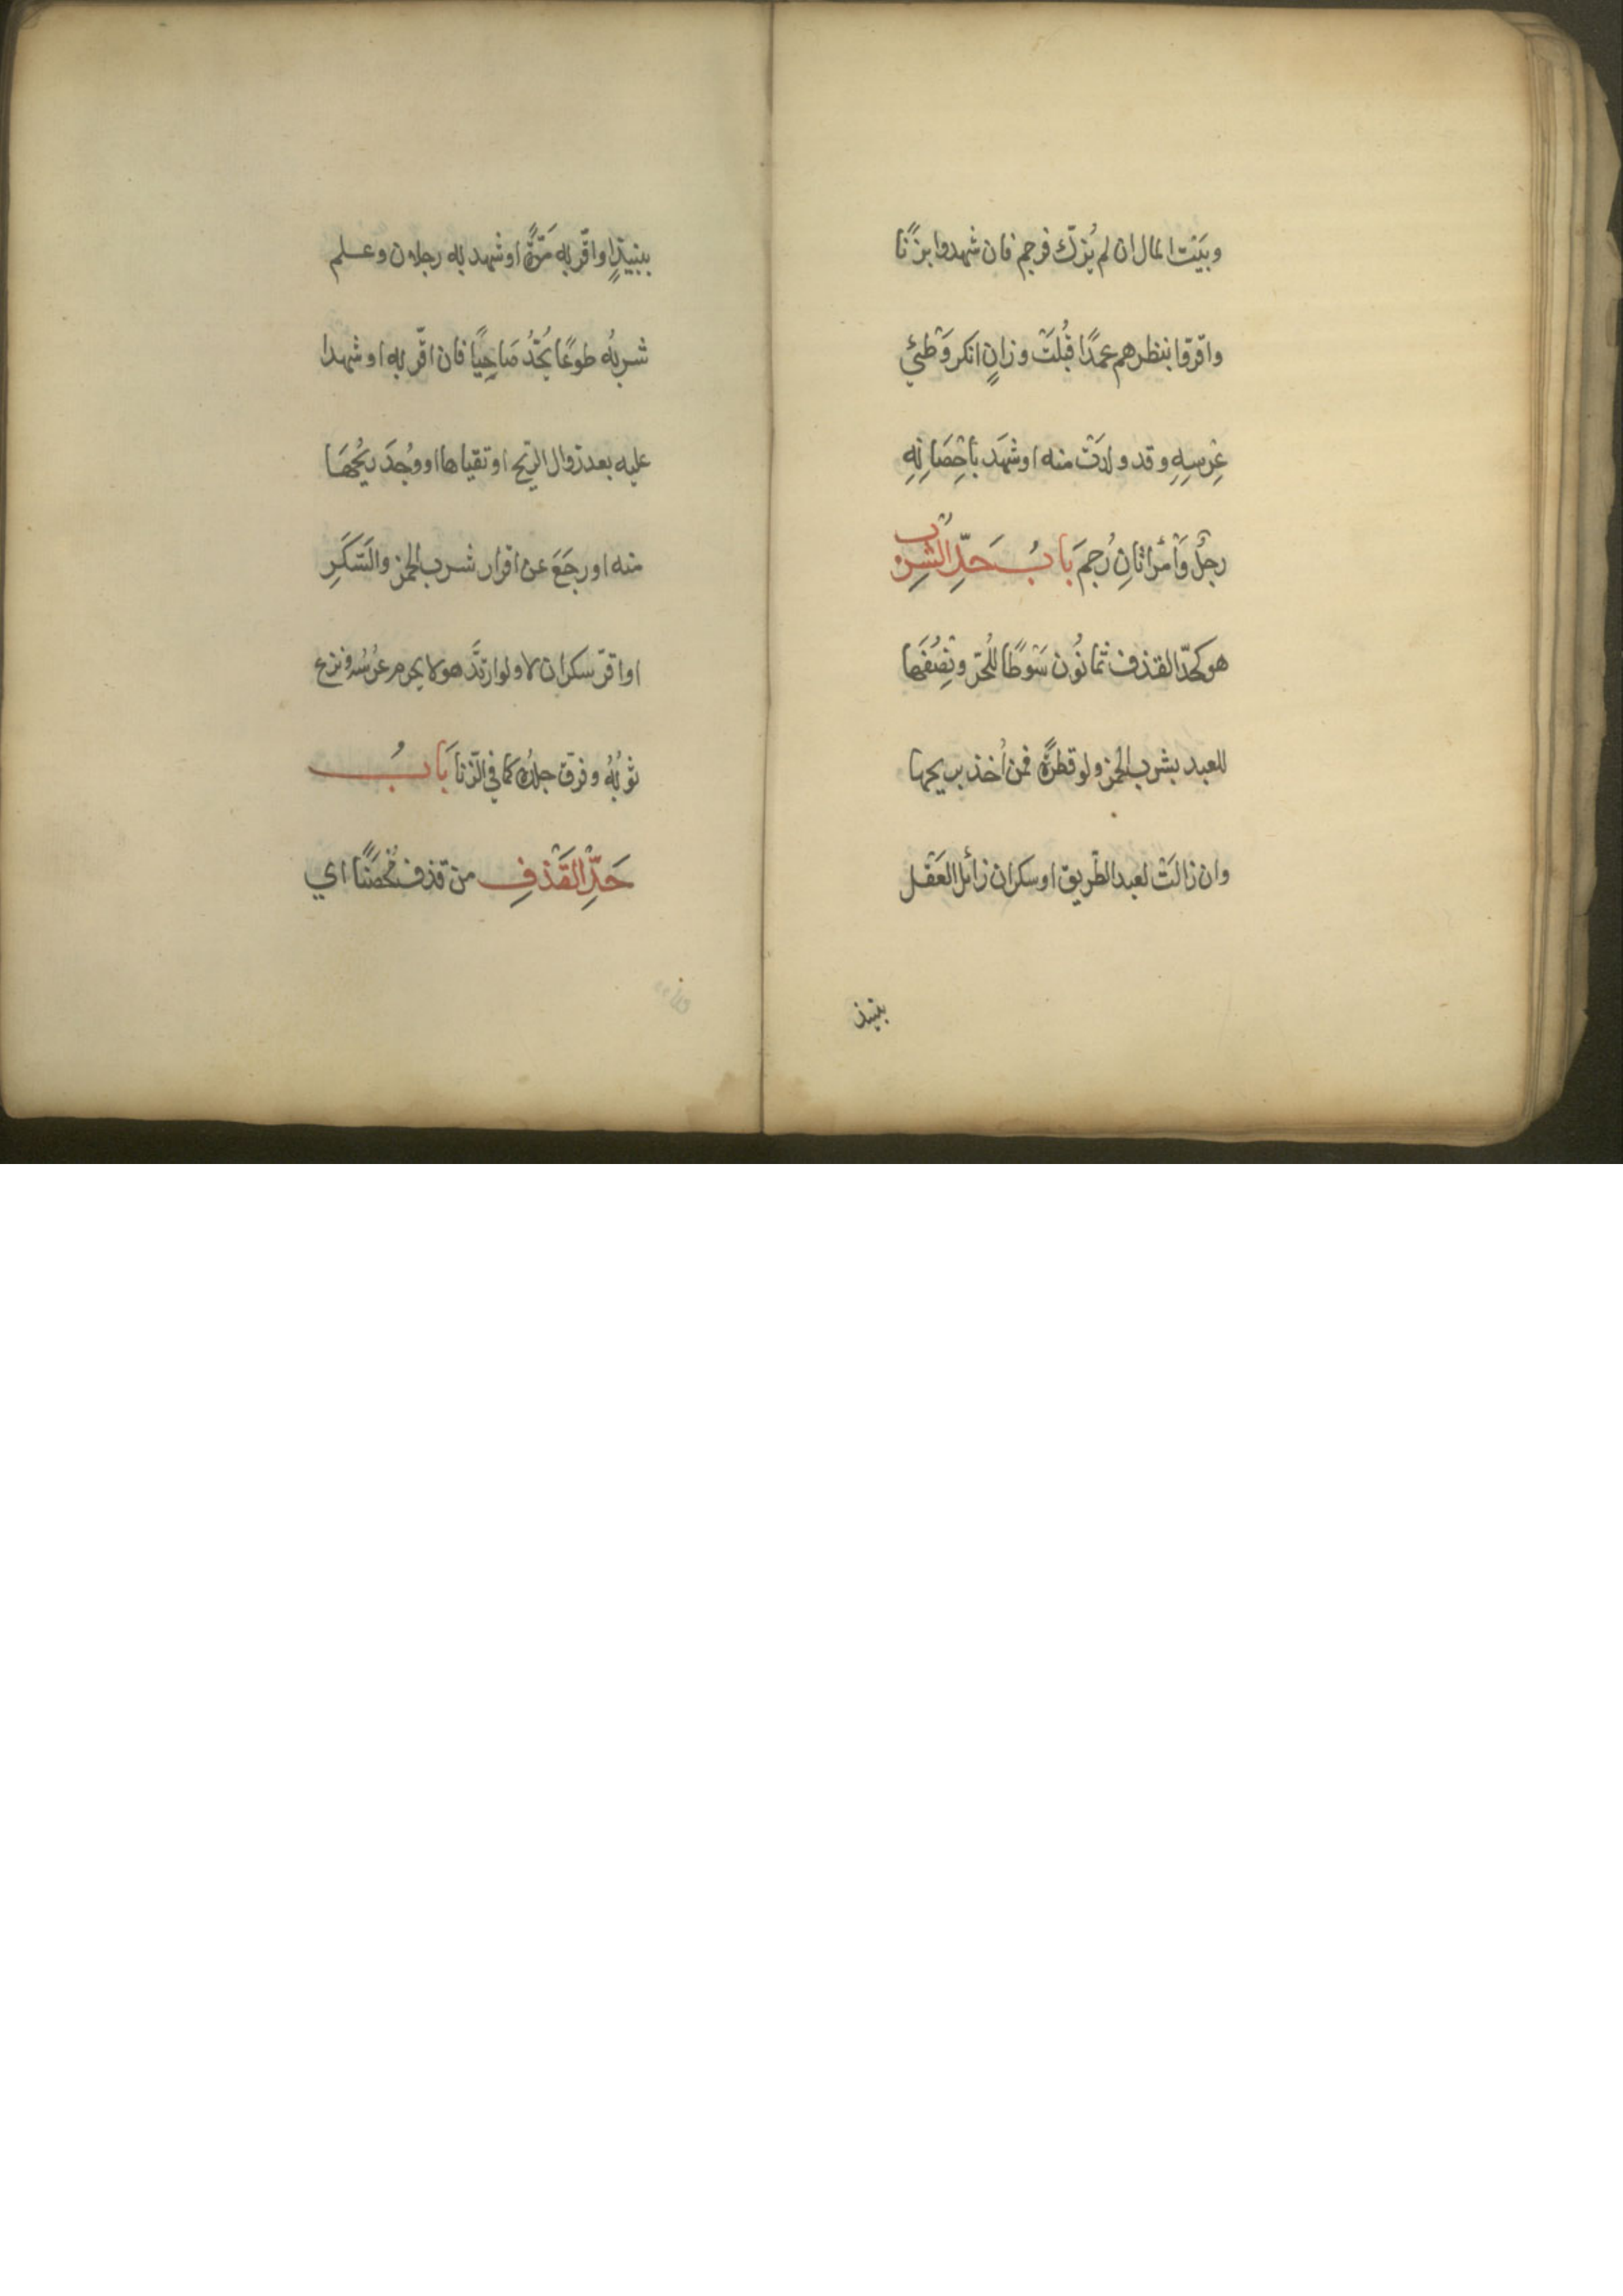 وبَيْت المال ان لم يُزكّ فرجم فان شهدوا بزنًا
واقرّوا بنظرهم عمدًا قُبلَتْ وزانٍ انكر وَطْئ
عِرْسِهِ وقد ولدَتْ منه او شهَد بِاحْصَانِهِ
رجلٌ وَاَمْرأتانِ رُجِمَ بَابُ حَدِّ الشُّرْب
هو كحدّ القذف ثمانُون سَوطًا للحُرّ ونِصْفُهَا
للعبد بشرب الخمر ولو قطرةً فمن اُخذ بريحها
وان زالَتْ لعبد الطّريق او سكران زائل العَقْل
بنبيذ
بنبيذٍ او اقّر به مَرّةً او شهد به رجلان وعلم
شربُه طوعًا يُحَدُّ صَاحِيًا فان اقّر به او شهدا
عليه بعد زوال الرّيح او تقيأها او وُجِدَ رِيحُهَا
منه او رجَعَ عن اقرار شرب الخمر والسَّكَرِ
او اقرّ سكران لا ولو ارتدَّ هو لا يحرم عرْسُه ونزع
ثوبُهُ وفرق جلدُه كما في الزّنا بَابُ
حَدِّ القَذْفِ من قذف مُحْصَنًا اي